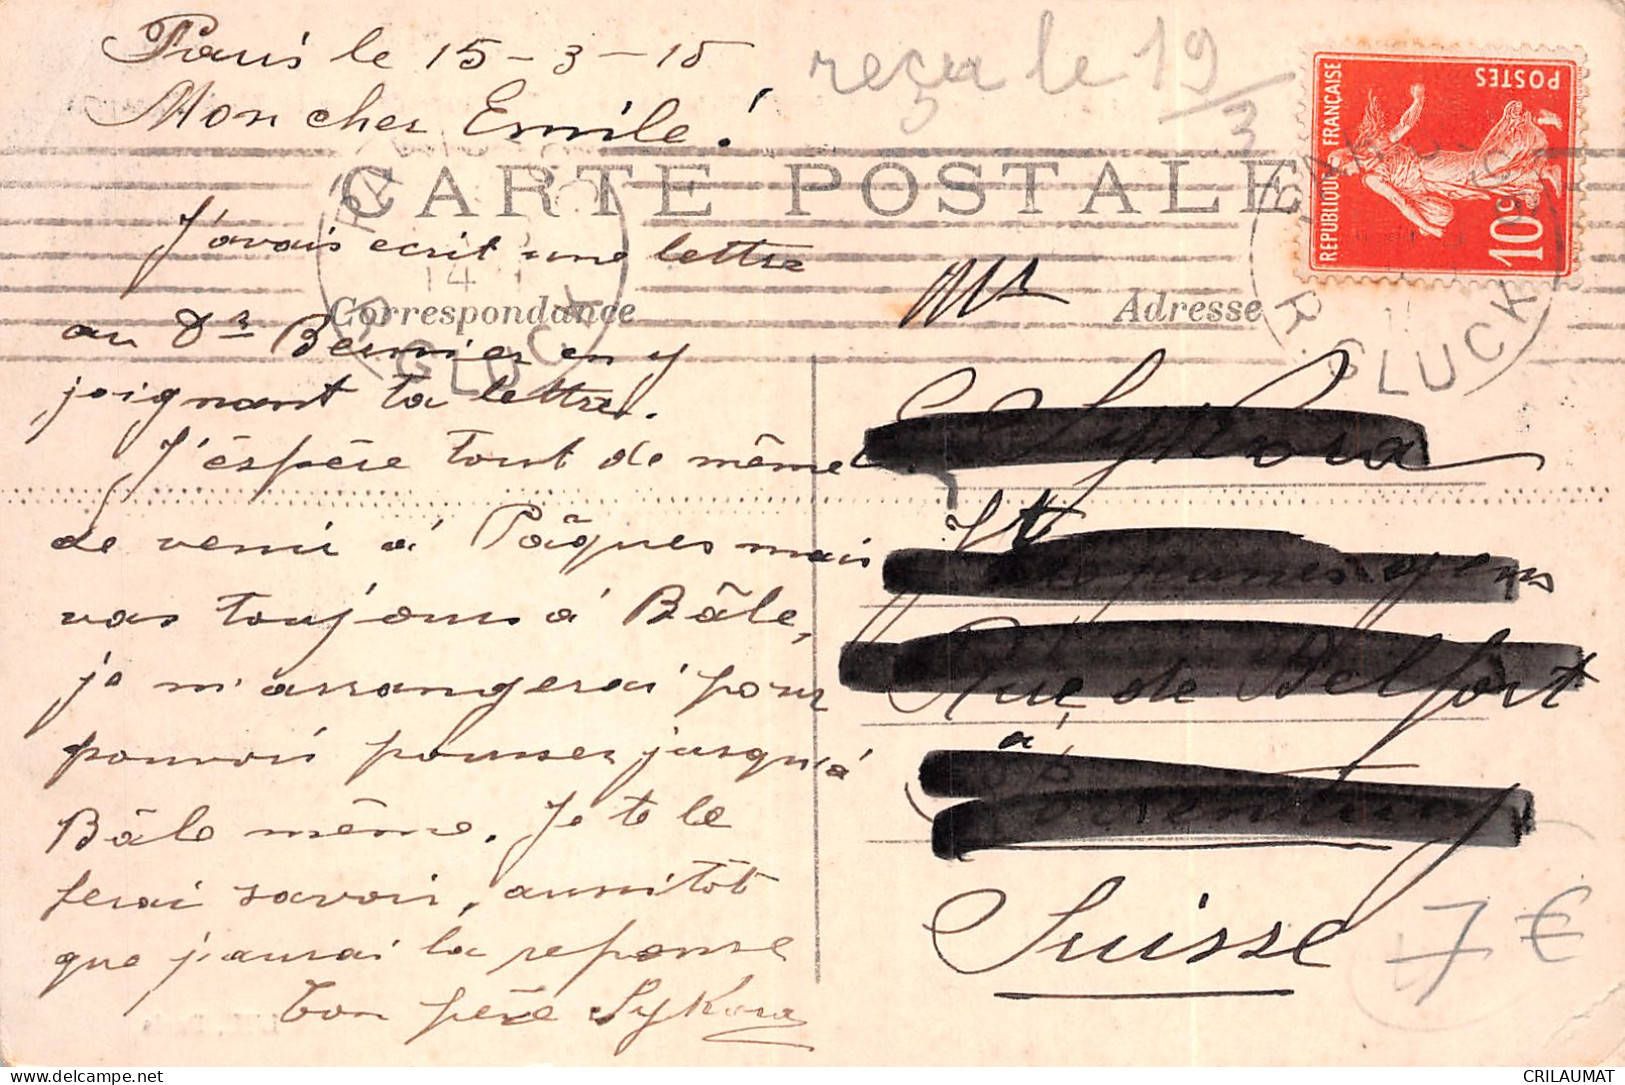 Paris le 15-3-15
reçu le 19/3
Mon cher Emile!
CARTE POSTALE
RÉPUBLIQUE FRANÇAISE
POSTES
10c
Correspondance
Adresse
PARIS
14
R. GLUCK
R. GLUCK
J'avais ecrit une lettre
au Dr Bernier en y
joignant ta lettre.
J'éspère tout de même
de venir à Pâques mais
vas toujours à Bâle,
je m'arrangerai pour
pouvoir pousser jusqu'à
Bâle même. Je te le
ferai savoir, aussitôt
que j'aurai la reponse
Ton père Sykora
Mr
Sykora
jeunes gens
Rue de Belfort
à
Suisse
7 €
CRILAUMAT